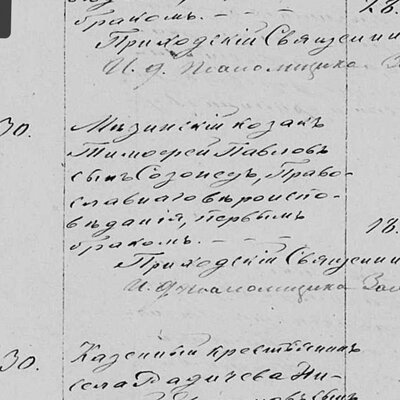 бракомъ. — — — 28.
Приходскій Священни
И. д. Псаломщика За
30. Мезинскій козакъ
Тимофей Павловъ
сынъ Созонецъ, Право-
славнаго вѣроиспо-
вѣданія, первымъ
бракомъ. — — — 18.
Приходскій Священни
И. д. Псаломщика Зал
30. Казенный крестьянинъ
села Радичева Ни-
сынъ